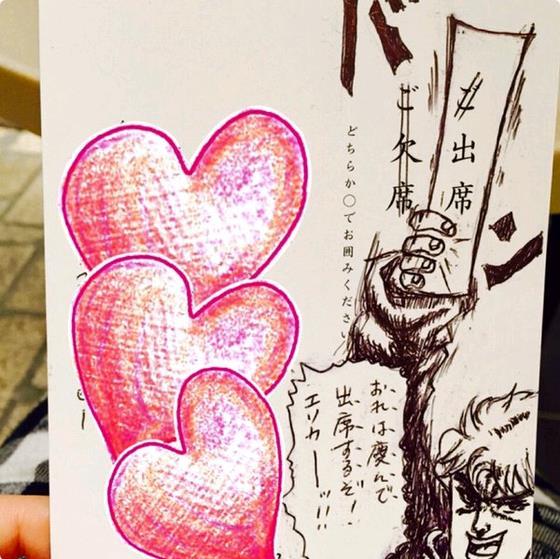 ドン
ご出席
ご欠席
どちらか〇でお囲みくださ
おれは慶んで
出席するぞ!
エリカーッ!!!